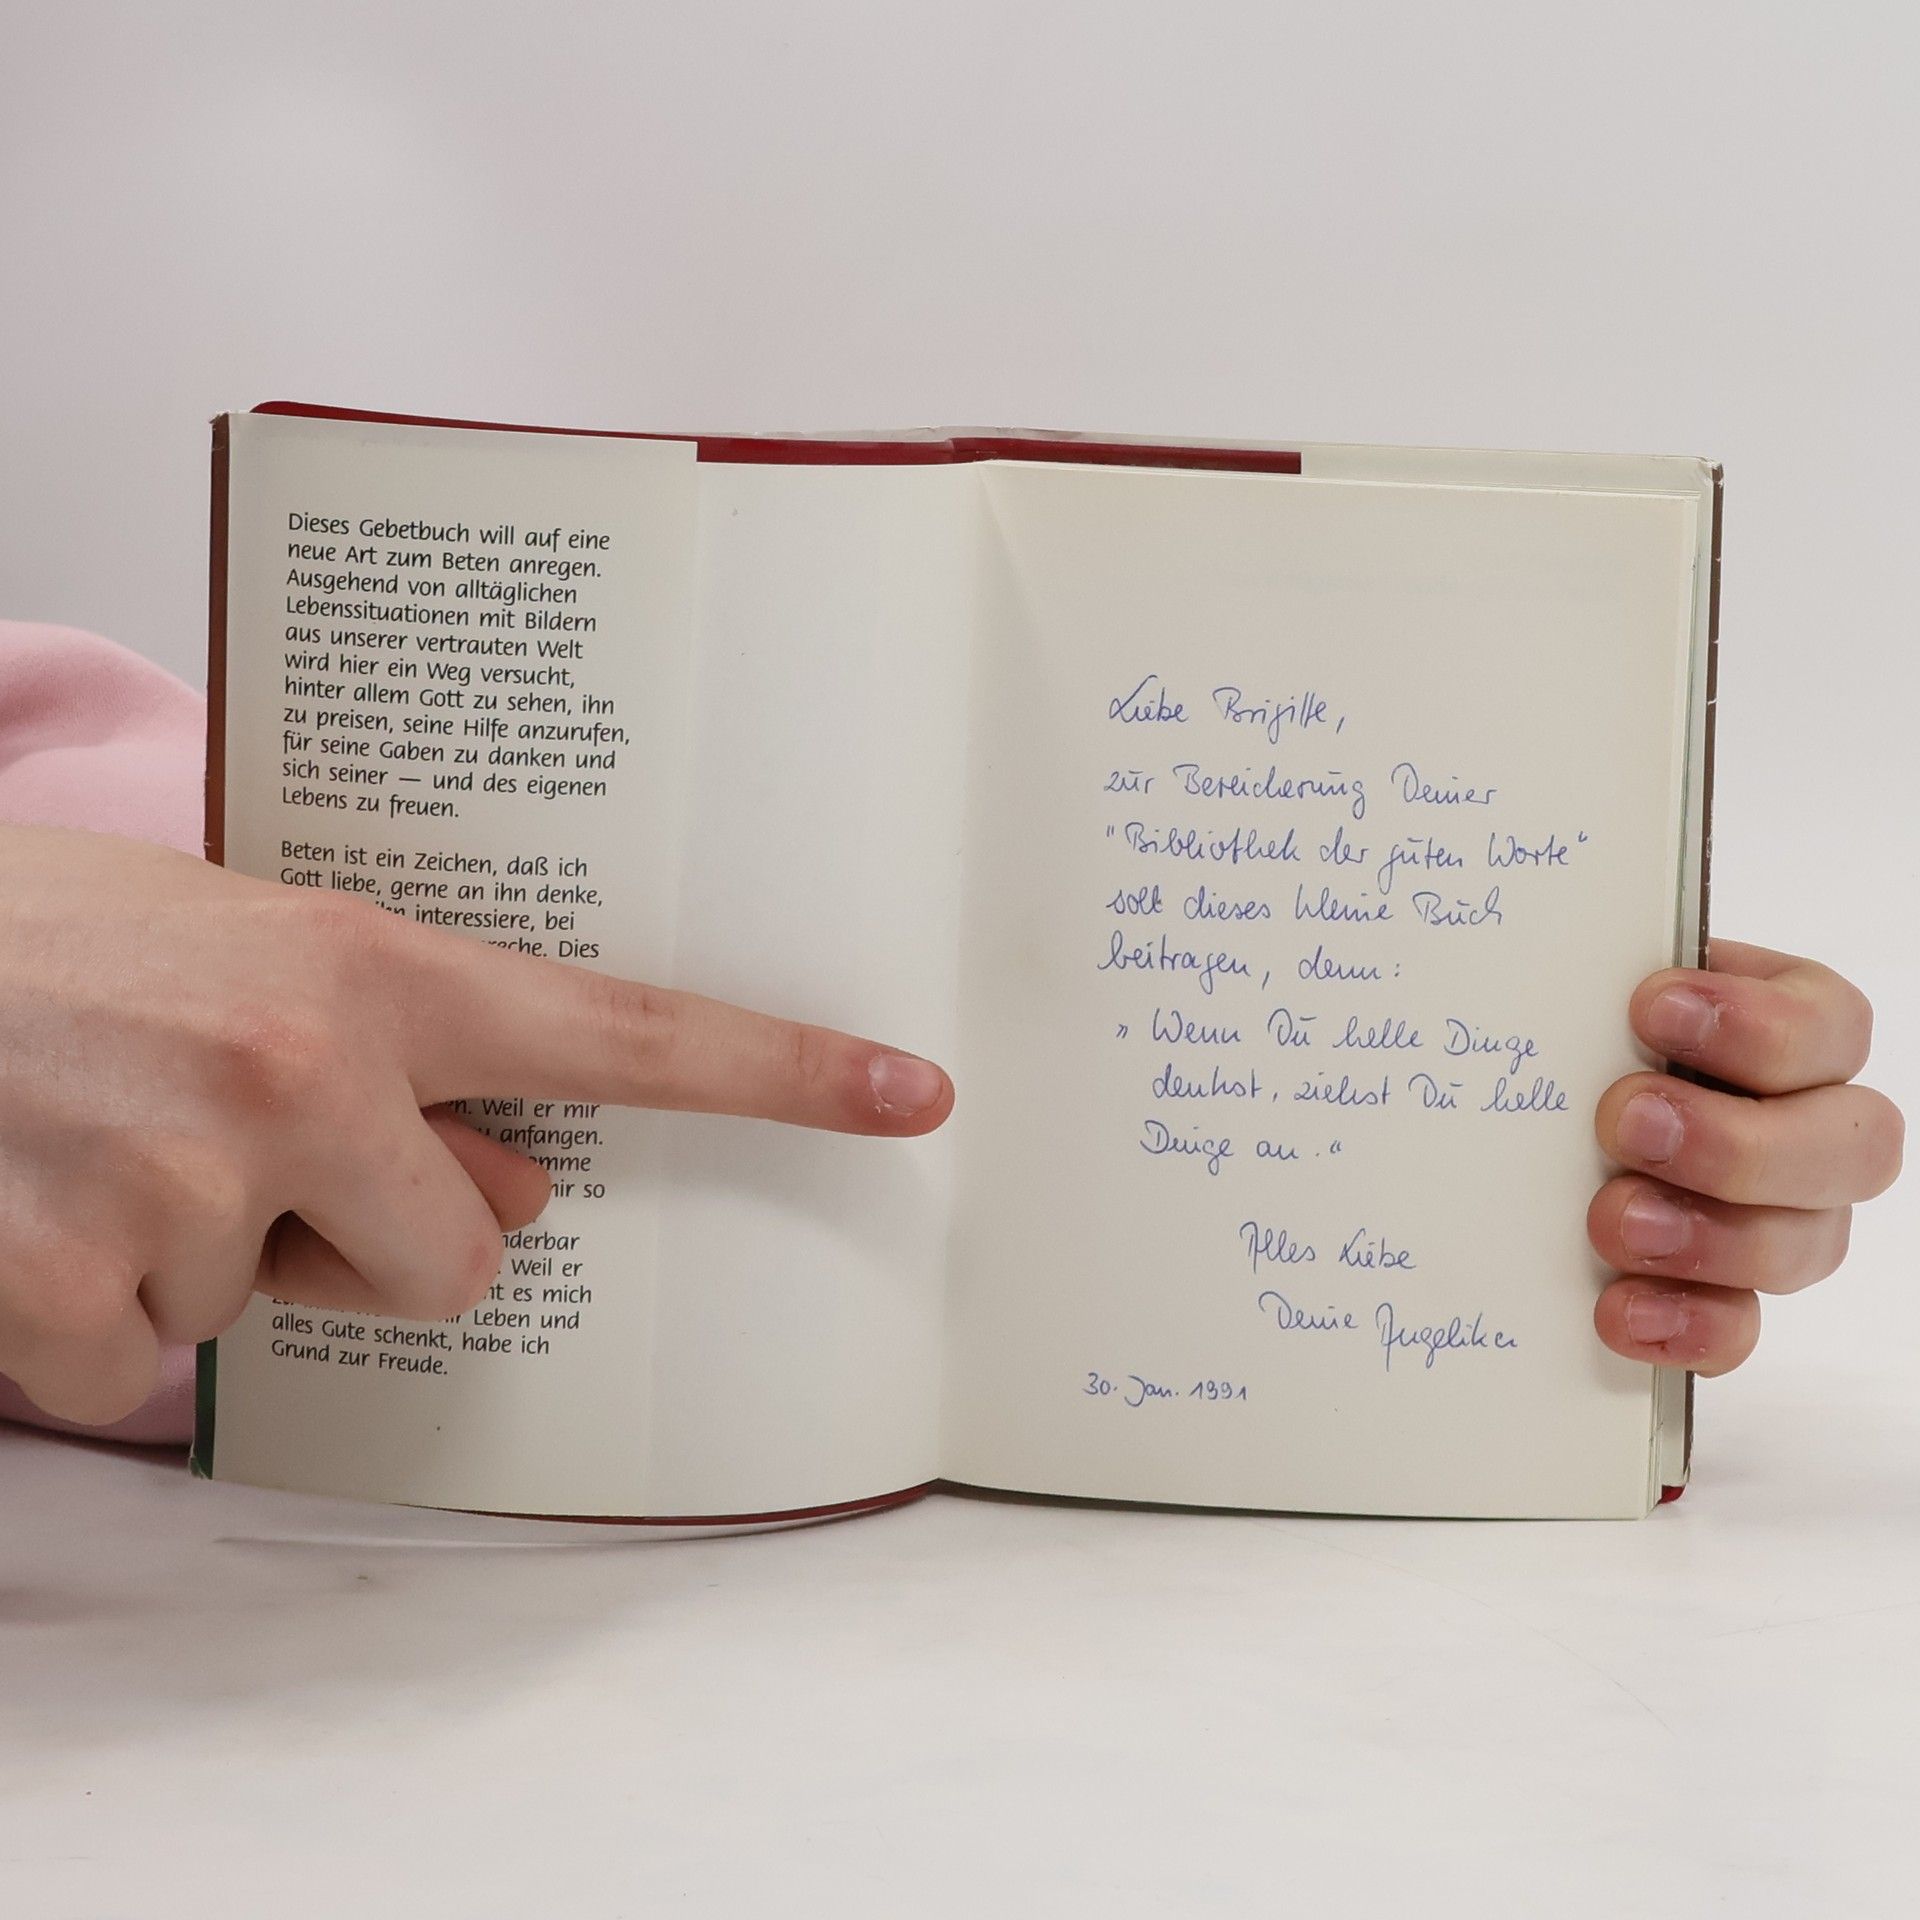 Dieses Gebetbuch will auf eine
neue Art zum Beten anregen.
Ausgehend von alltäglichen
Lebenssituationen mit Bildern
aus unserer vertrauten Welt
wird hier ein Weg versucht,
hinter allem Gott zu sehen, ihn
zu preisen, seine Hilfe anzurufen,
für seine Gaben zu danken und
sich seiner — und des eigenen
Lebens zu freuen.
Beten ist ein Zeichen, daß ich
Gott liebe, gerne an ihn denke,
interessiere, bei
Dies
Weil er mir
anfangen.
so
Weil er
es mich
Leben und
alles Gute schenkt, habe ich
Grund zur Freude.
Liebe Brigitte,
zur Bereicherung Deiner
"Bibliothek der guten Worte“
soll dieses kleine Buch
beitragen, denn:
» Wenn Du helle Dinge
denkst, ziehst Du helle
Dinge an.“
Alles Liebe
Deine Angelika
30. Jan. 1991